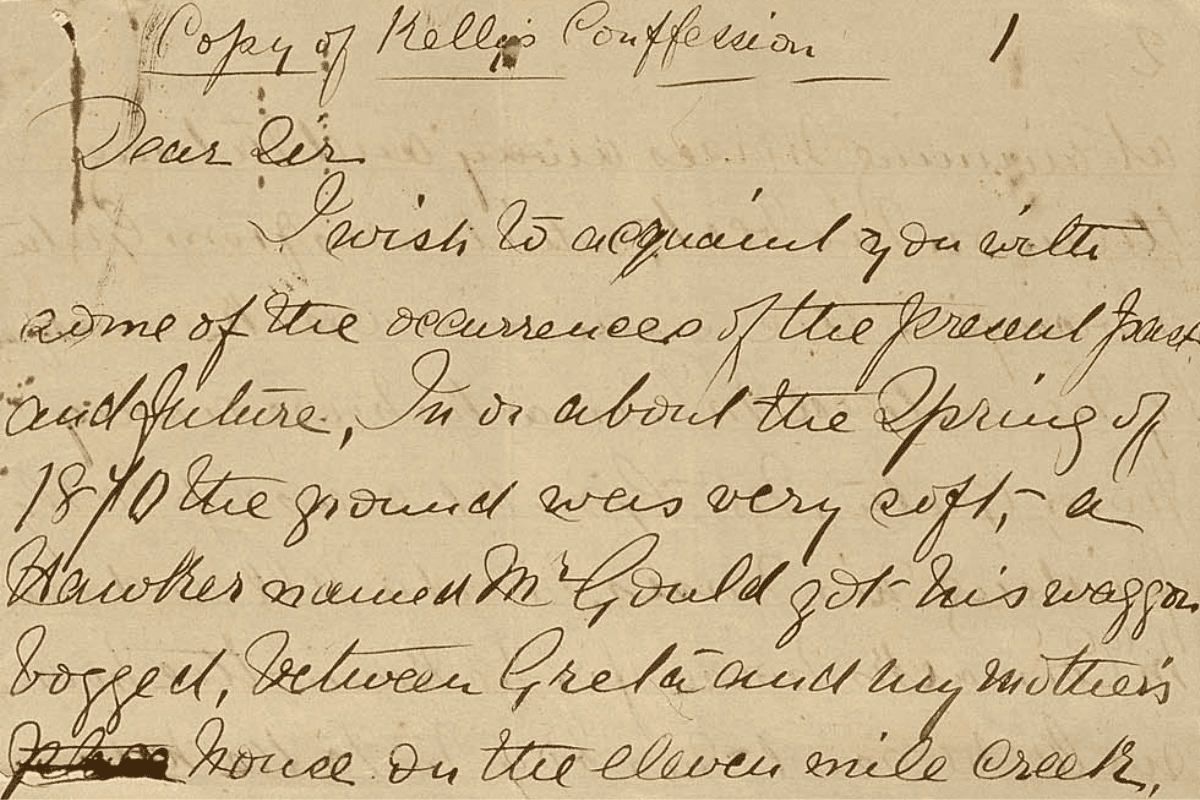 Copy of Kellys Conffession 1
Dear Sir
I wish to acquaint you with
some of the occurrences of the present past
and future, In or about the Spring of
1870 the ground was very soft, a
Hawker named Mr Gould got his waggon
bogged, between Greta and my mother's
place house on the eleven mile creek,